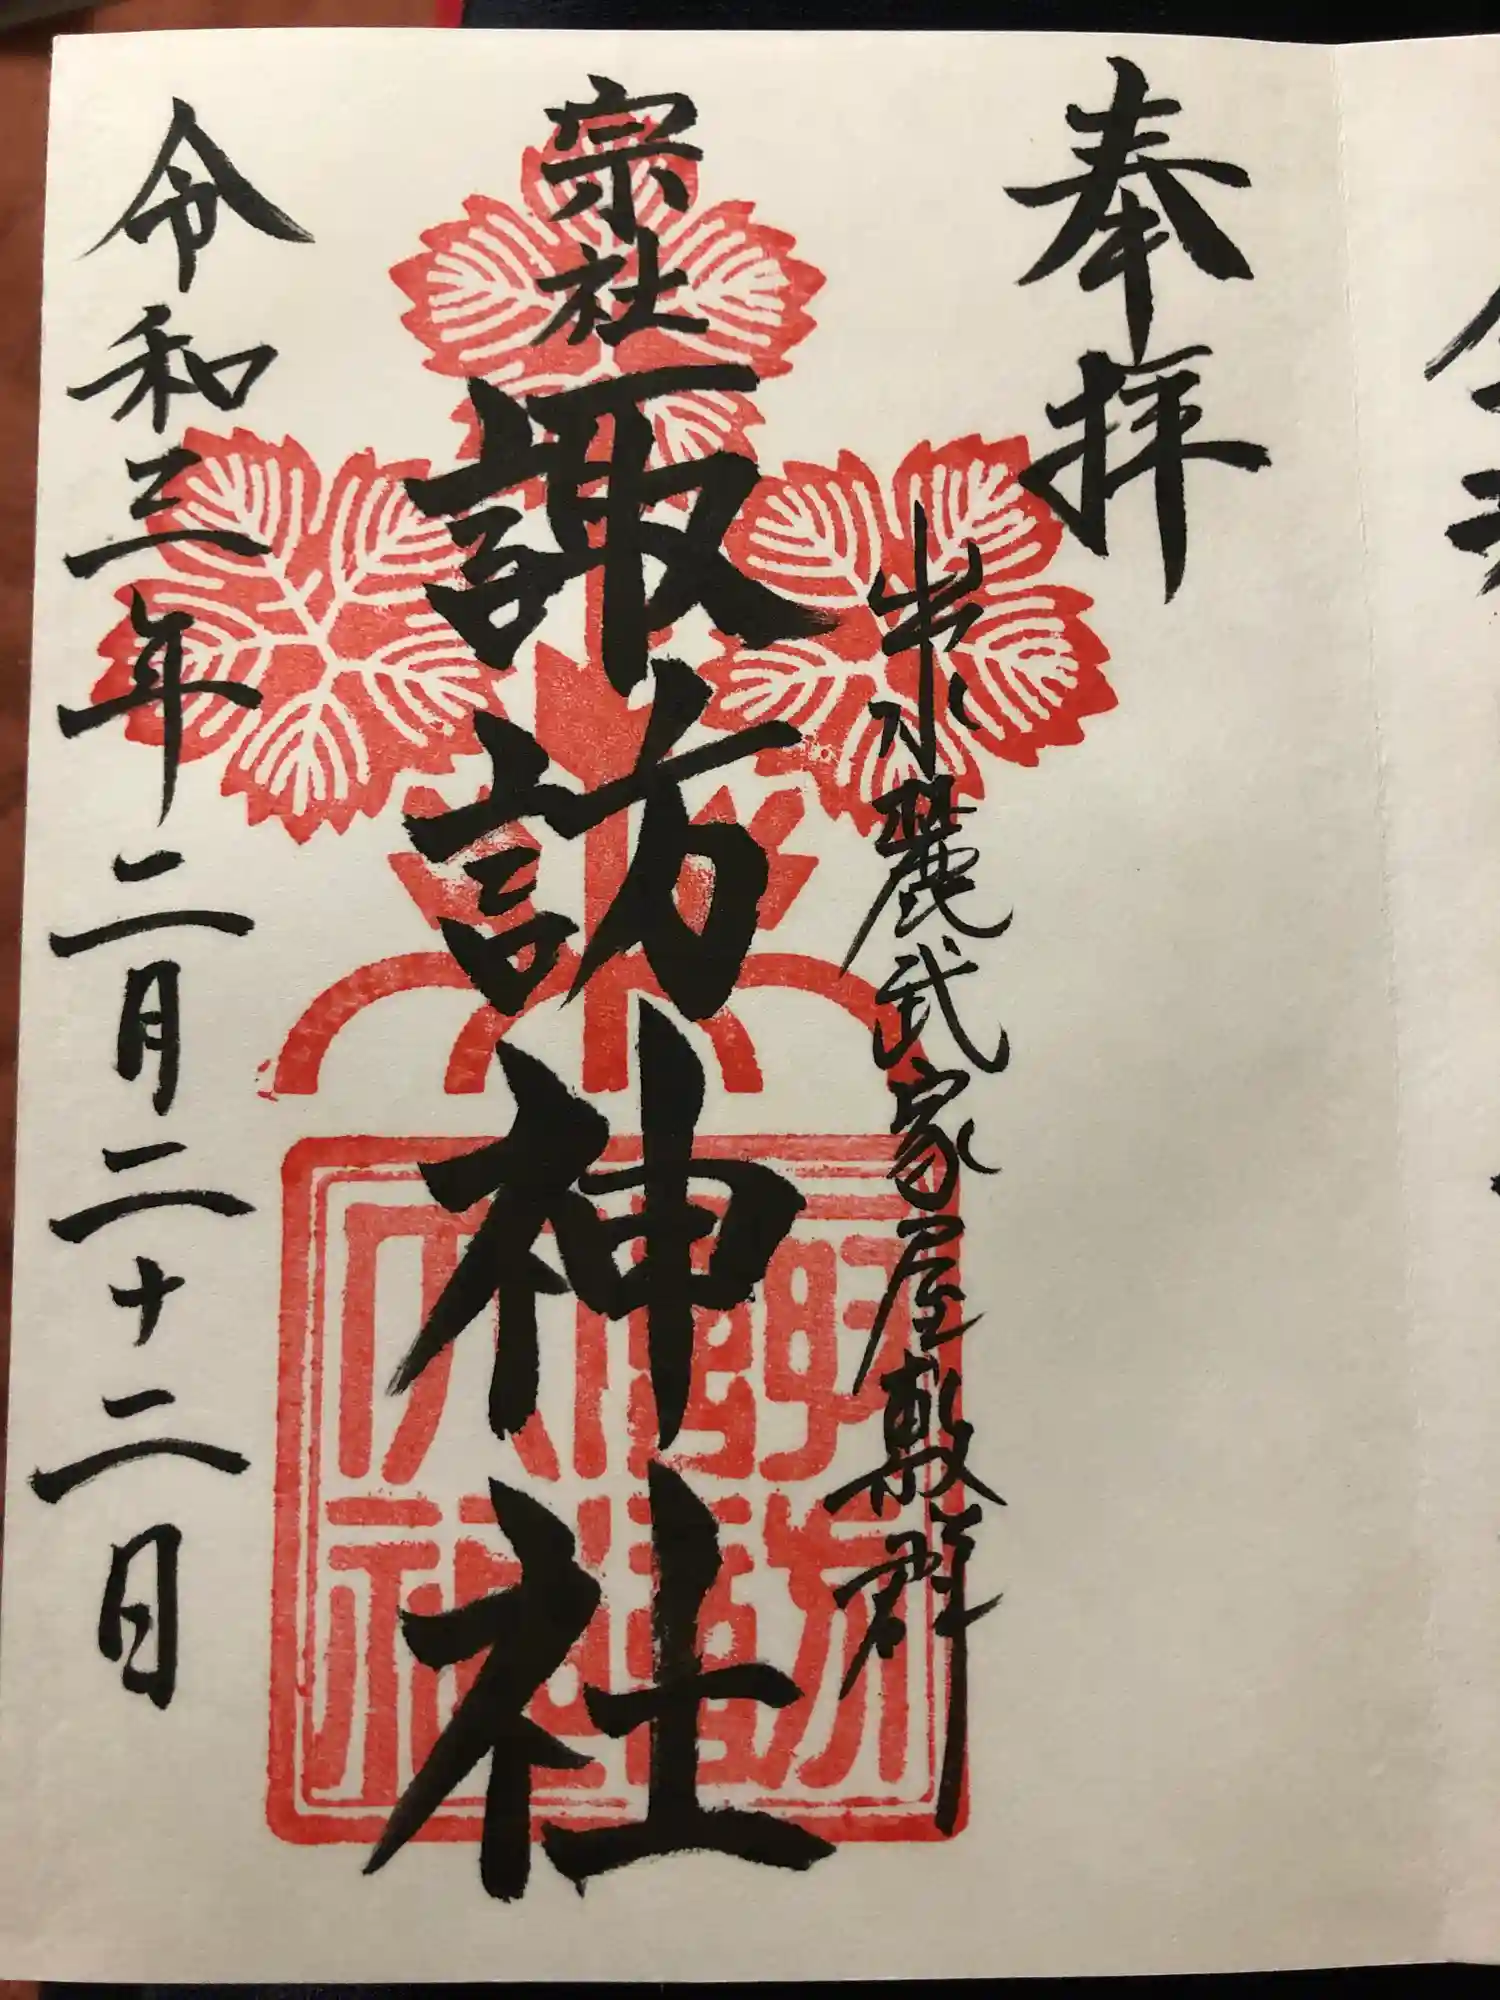 奉拝
出水麓武家屋敷群
宗社
諏訪神社
令和三年二月二十二日